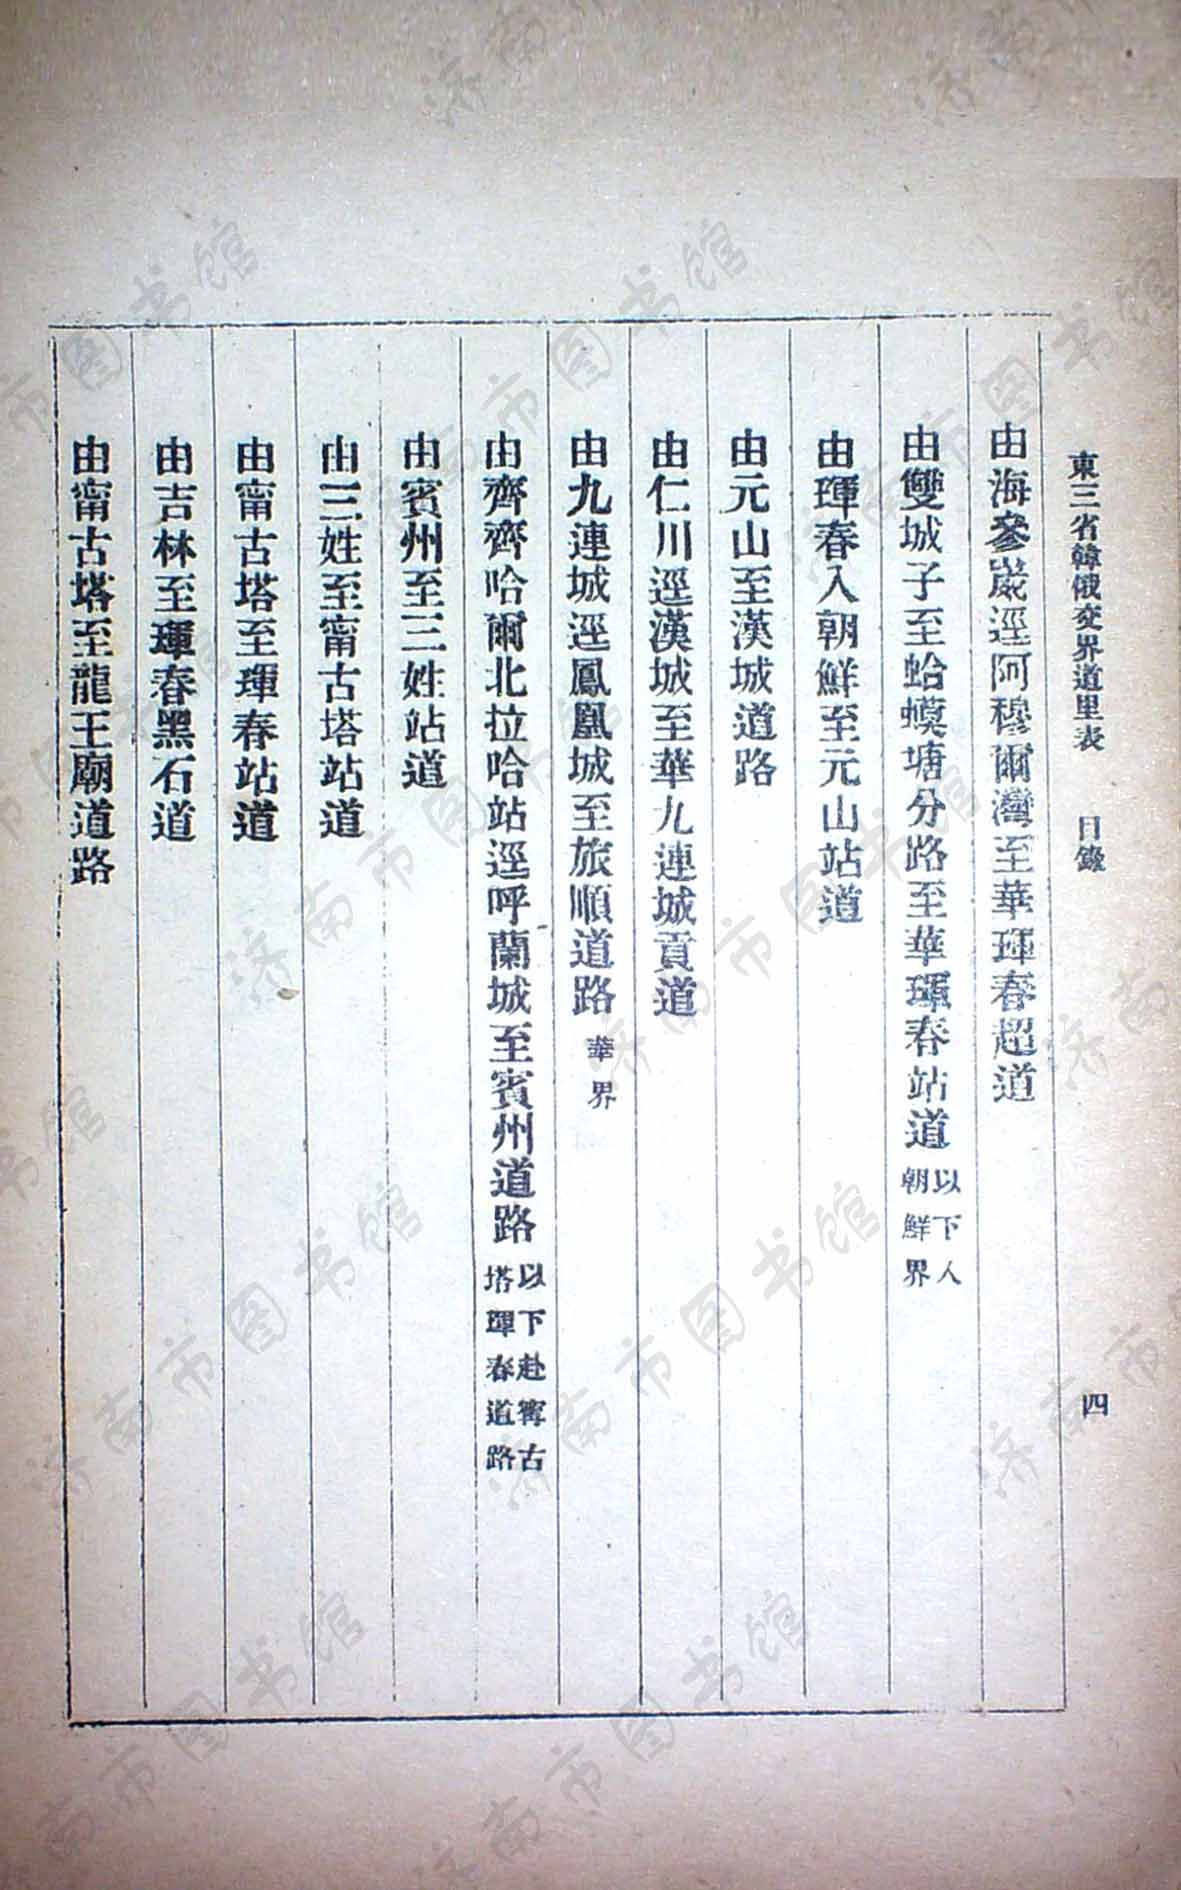 東三省韓俄交界道里表 目錄 四
由海參崴逕阿穆爾灣至華琿春超道
由雙城子至蛤蟆塘分路至華琿春站道 以下入朝鮮界
由琿春入朝鮮至元山站道
由元山至漢城道路
由仁川逕漢城至華九連城貢道
由九連城逕鳳凰城至旅順道路 華界
由齊齊哈爾北拉哈站逕呼蘭城至賓州道路 以下赴甯古塔琿春道路
由賓州至三姓站道
由三姓至甯古塔站道
由甯古塔至琿春站道
由吉林至琿春黑石道
由甯古塔至龍王廟道路
济南市图书馆